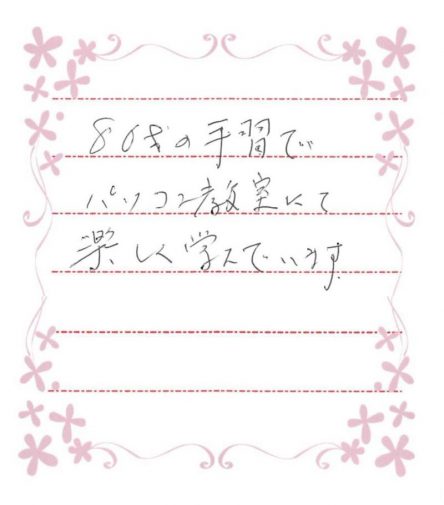 80才の手習で
パソコン教室にて
楽しく学んでいます